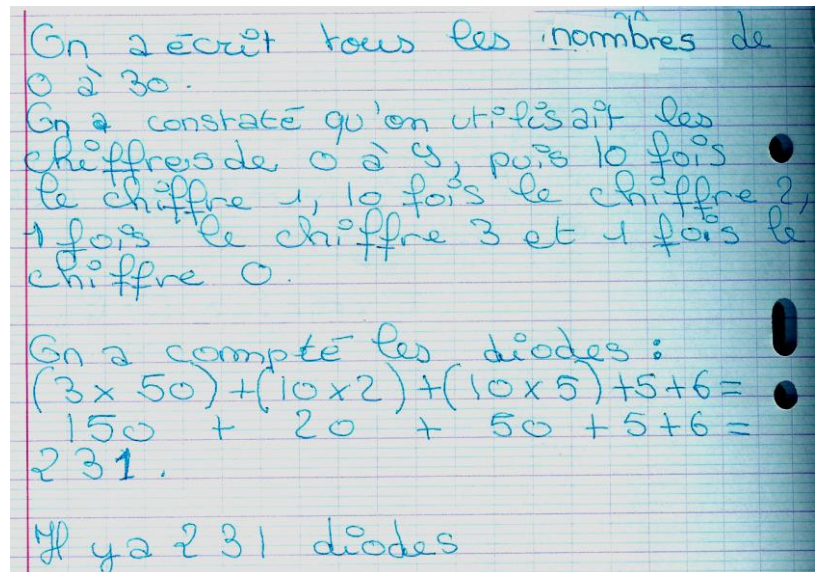 On a écrit tous les nombres de
0 à 30.
On a constaté qu'on utilisait les
chiffres de 0 à 9, puis 10 fois
le chiffre 1, 10 fois le chiffre 2,
1 fois le chiffre 3 et 1 fois le
chiffre 0.
On a compté les diodes :
(3 x 50) + (10 x 2) + (10 x 5) + 5 + 6 =
150 + 20 + 50 + 5 + 6 =
231.
Il y a 231 diodes